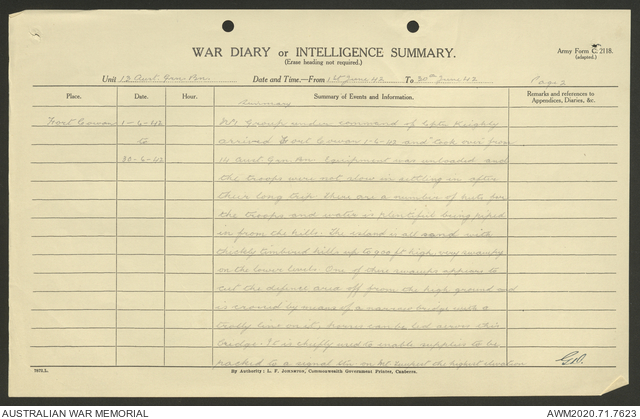 WAR DIARY or INTELLIGENCE SUMMARY.
(Erase heading not required.)
Army Form C. 2118.
(adapted.)
Unit 13 Aust. Gsn. Bn. Date and Time.—From 1st June 42 To 30th June 42 Page 2
Place. Date. Hour. Summary of Events and Information. Remarks and references to Appendices, Diaries, &c.
Summary
Fort Cowan 1-6-42 Group under command of Capt Keighly
to arrived Fort Cowan 1-6-42 and took over from
30-6-42 14 Aust Gsn Bn Equipment was unloaded and
the troops were not slow in settling in after
their long trip. There are a number of huts for
the troops and water is plentiful being piped
in from the hills. The island is all sand with
thickly timbered hills up to 900 ft high, very swampy
on the lower levels. One of these swamps appears to
cut the defence area off from the high ground and
is crossed by means of a narrow bridge with a
trolly line on it, horses can be led across this
bridge. It is chiefly used to enable supplies to be
packed to a signal stn on Mt Tempest the highest elevation
7872.L. By Authority: L. F. Johnston, Commonwealth Government Printer, Canberra.
AUSTRALIAN WAR MEMORIAL AWM2020.71.7623